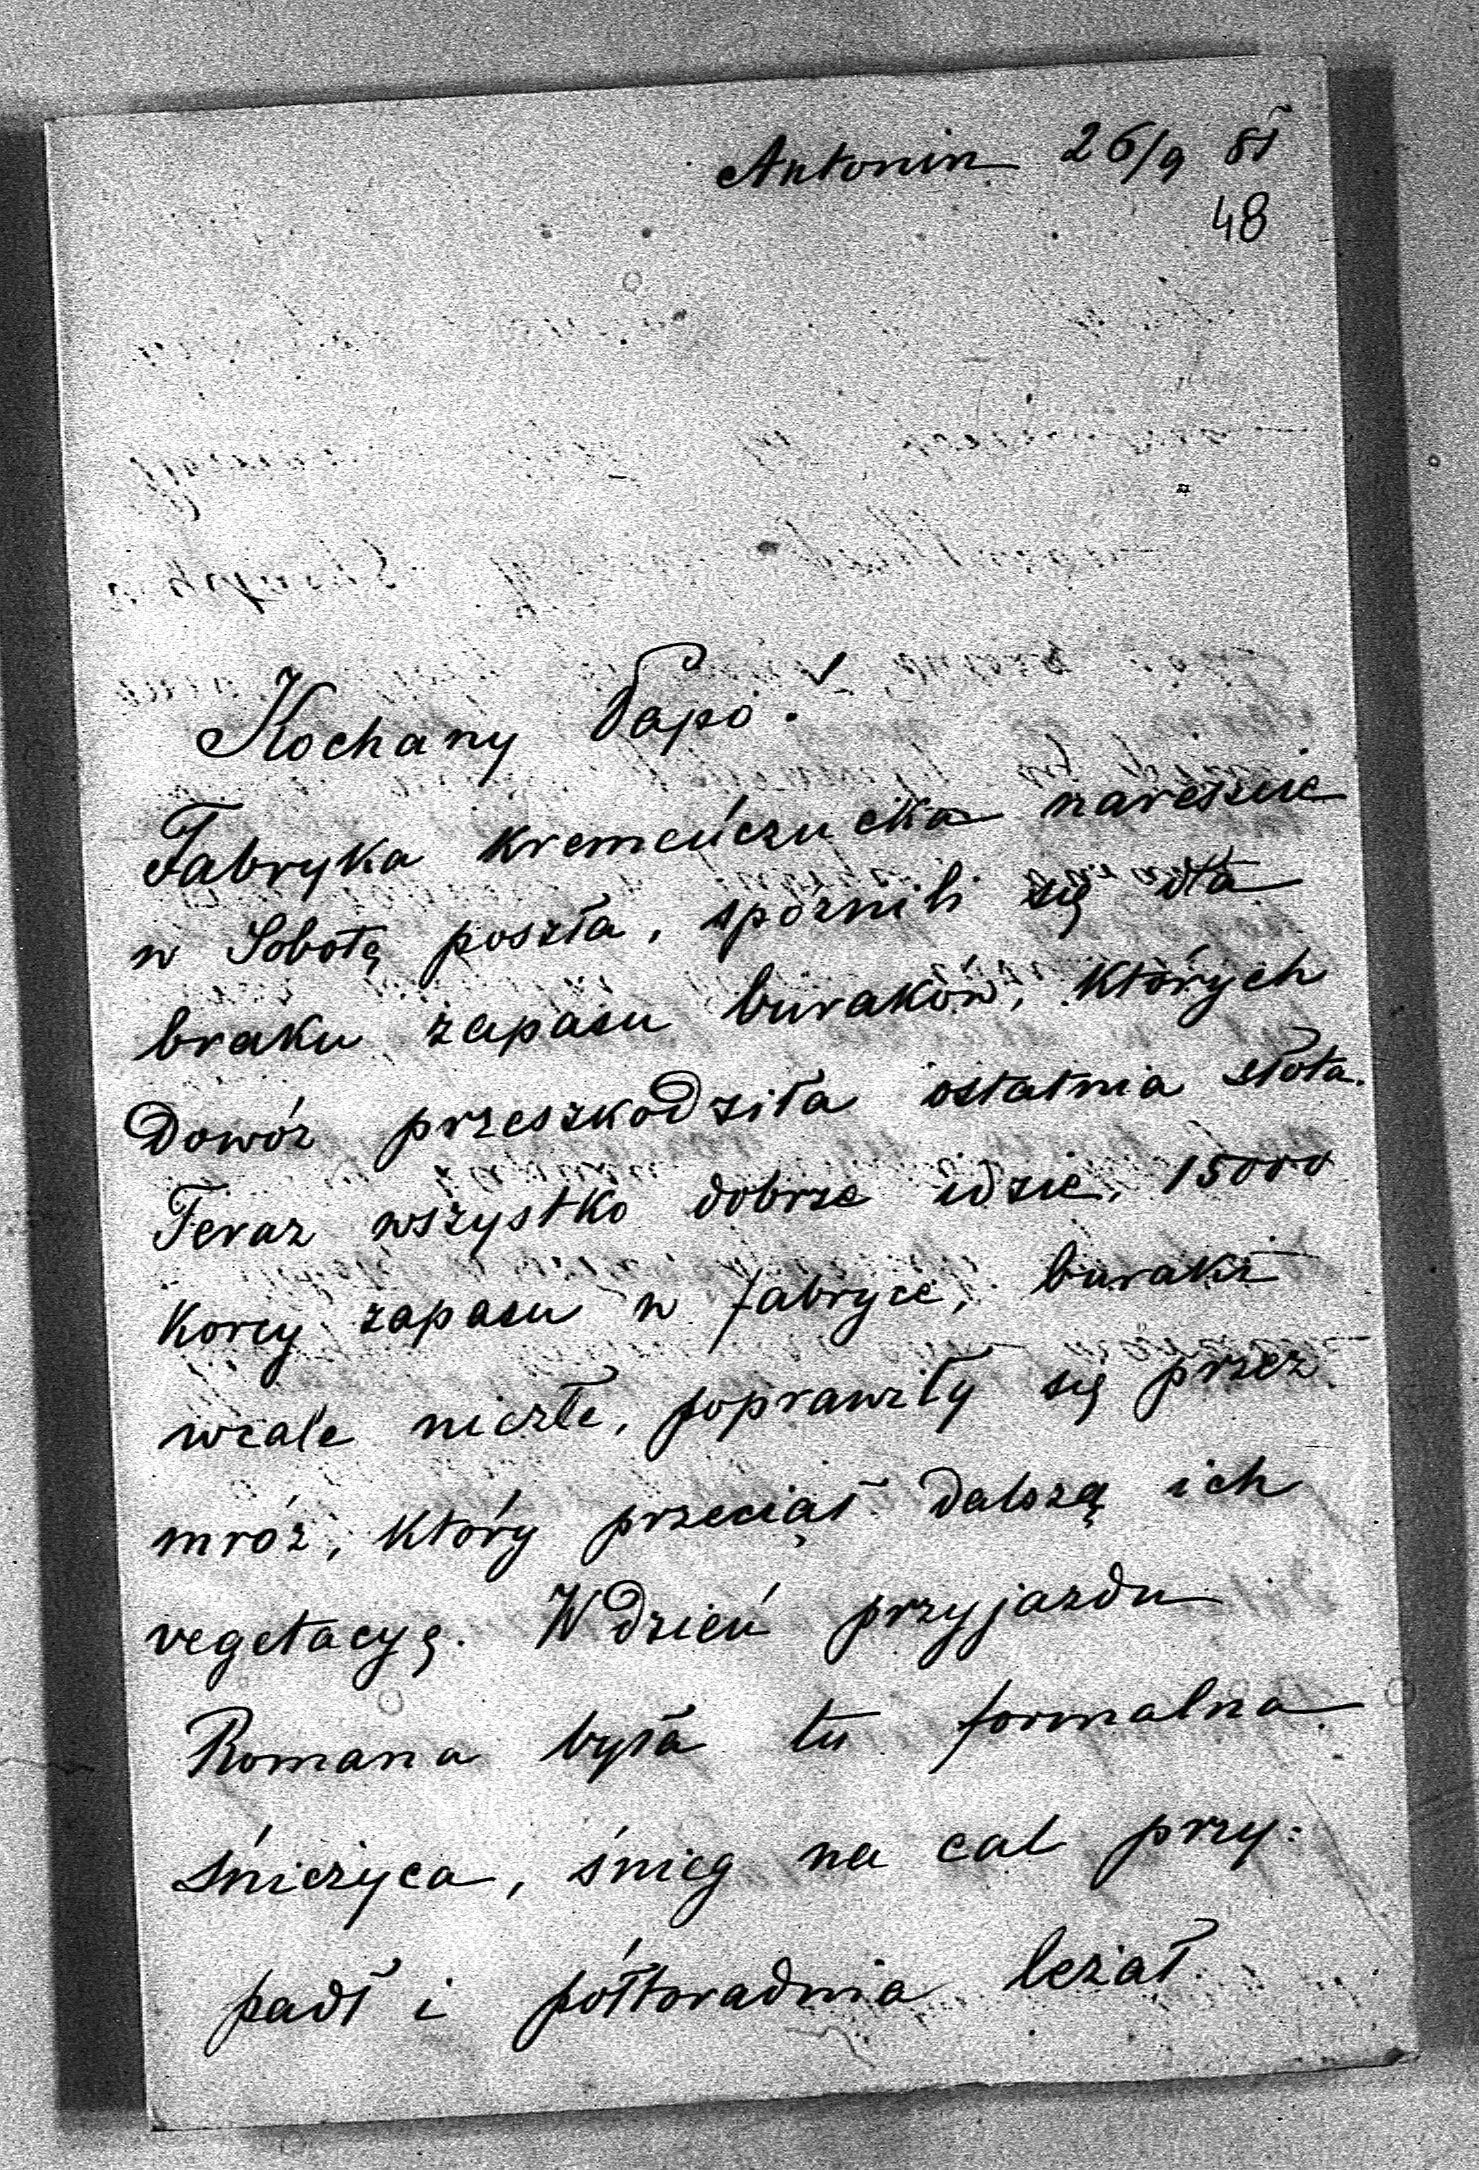 Antonin 26/9 81
48
Kochany Papo!
Fabryka kremeńczucka nareszcie
w Sobotę poszła, spóźnili się dla
braku zapasu buraków, których
Dowóz przeszkodziła ostatnia słota.
Teraz wszystko dobrze idzie, 15000
korcy zapasu w fabryce, buraki
wcale niezłe, poprawiły się przez
mróz, który przeciął dalszą ich
vegetacyę. W dzień przyjazdu
Romana była tu formalna
śnieżyca, śnieg na cal przy:
padł i półtoradnia leżał